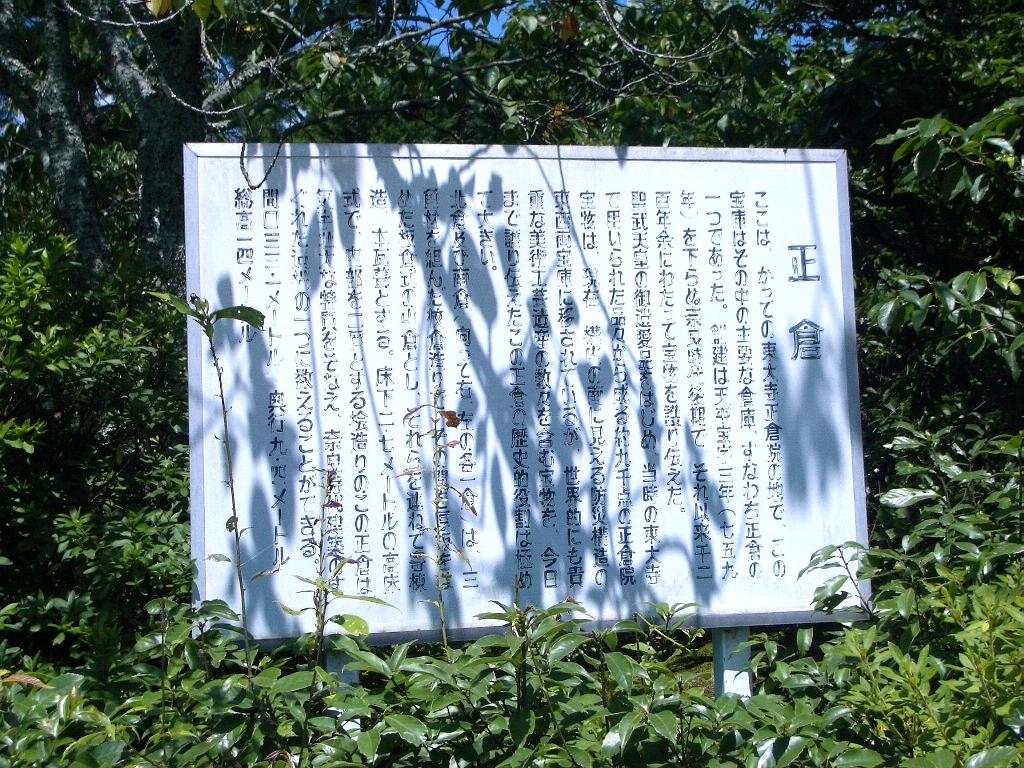 正倉
ここは、かつての東大寺正倉院の地で、この
宝庫はその中の主要な倉庫、すなわち正倉の
一つであった。創建は天平宝字三年(七五九
年)を下らぬ奈良時代後期で、それ以来千二
百年余にわたって宝物を護り伝えた。
聖武天皇の御遺愛品をはじめ、当時の東大寺
で用いられた品々から成る約九千点の正倉院
宝物は、現在、構内の南に見える防災構造の
東西両宝庫に移されているが、世界的にも貴
重な美術工芸遺産の数々を含む宝物を、今日
まで護り伝えたこの正倉の歴史的役割は極め
て大きい。
北倉及び南倉(向って右、左の各一倉)は、三
角材を組んだ校倉造り、その間と前後をは
めた板倉式の中倉とし、これらを連ねて寄棟
造、本瓦葺とする。床下二・七メートルの高床
式で、内部を二層とする総造りのこの正倉は
な特質をそなえ、奈良時代建築のす
ぐれた遺構の一つに数えることができる。
間口三三・一メートル 奥行九・四メートル
総高一四メートル